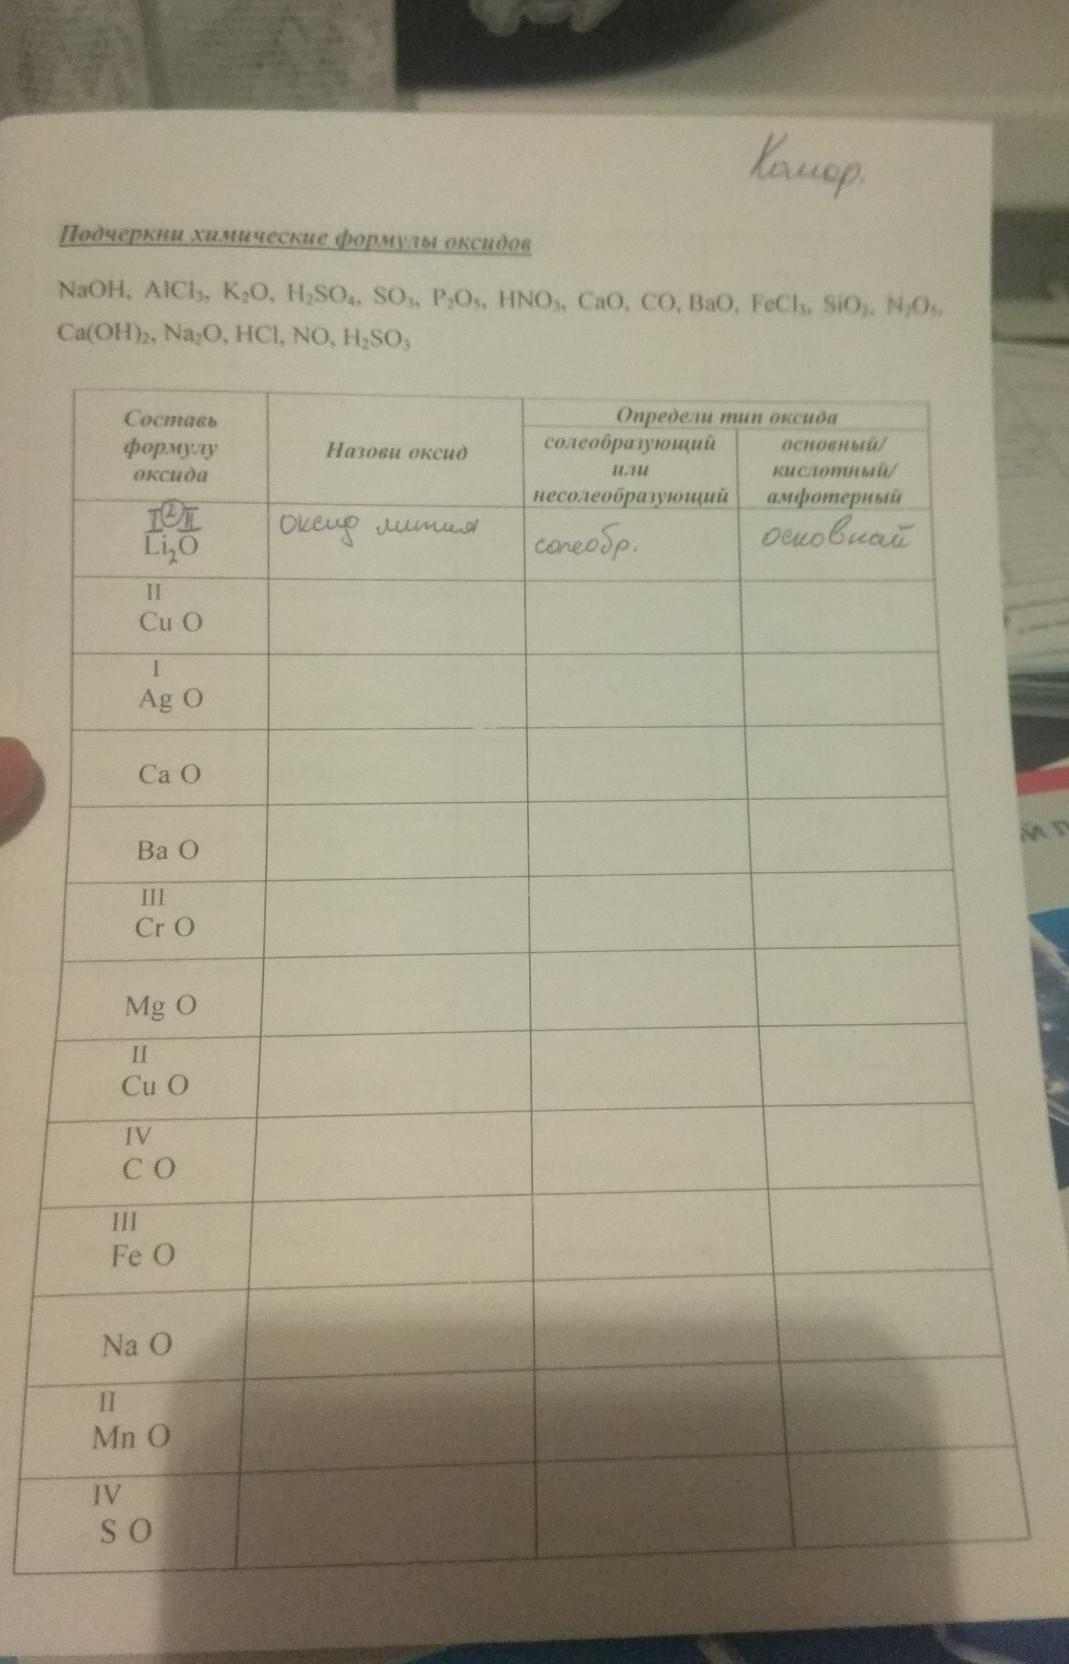 Камор.
Подчеркни химические формулы оксидов
NaOH, AlCl₃, K₂O, H₂SO₄, SO₃, P₂O₅, HNO₃, CaO, CO, BaO, FeCl₃, SiO₂, N₂O₅,
Ca(OH)₂, Na₂O, HCl, NO, H₂SO₃
Составь
формулу
оксида
Назови оксид
Определи тип оксида
солеобразующий
или
несолеобразующий
основный/
кислотный/
амфотерный
I 2 II
Li₂O
оксид лития
солеобр.
основной
II
Cu O
I
Ag O
Ca O
Ba O
III
Cr O
Mg O
II
Cu O
IV
C O
III
Fe O
Na O
II
Mn O
IV
S O